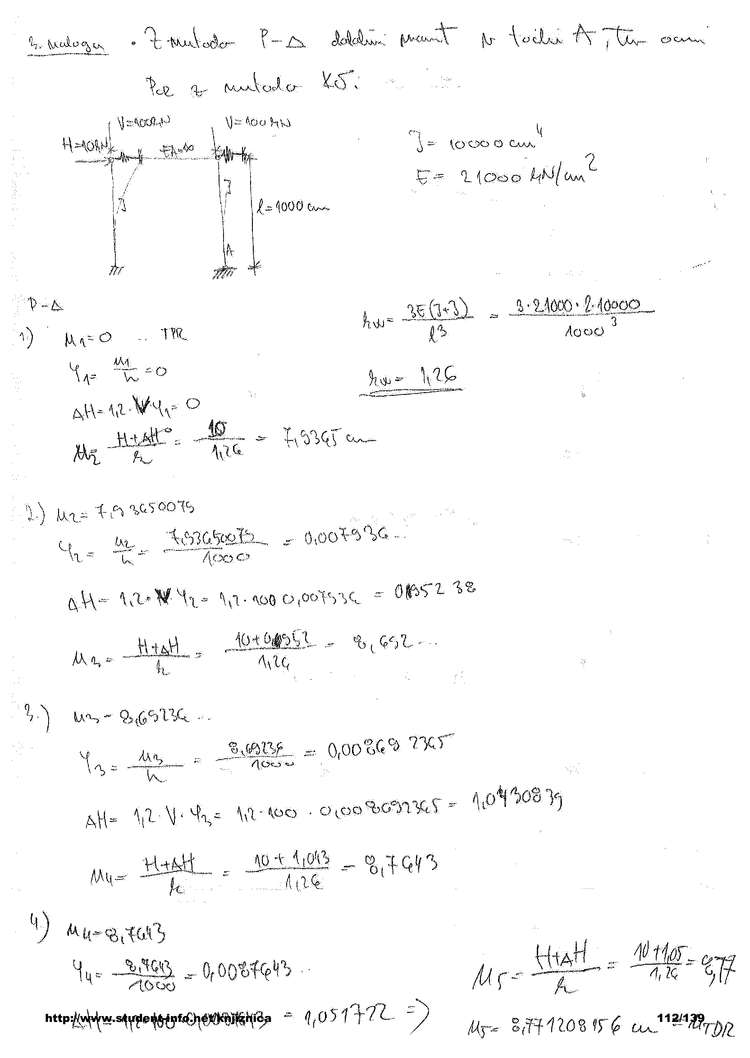 3. naloga • Z metodo P-Δ določimo moment v točki A, ter oceni
Pcr z metodo KS.
V=100kN V=100kN
H=10kN EA=∞
J J l=1000 cm
A
J = 10000 cm⁴
E = 21000 kN/cm²
P-Δ
kw = 3E(J+J)/l³ = 3·21000·2·10000/1000³
kw = 1,26
1) u₁=0 .. TPR
φ₁ = u₁/h = 0
ΔH = 1,2·V·φ₁ = 0
u₂ = H+ΔH⁰/k = 10/1,26 = 7,9365 cm
2.) u₂ = 7,93650079
φ₂ = u₂/h = 7,93650079/1000 = 0,007936...
ΔH = 1,2·V·φ₂ = 1,2·100 0,007936 = 0,95238
u₃ = H+ΔH/k = 10+0,952/1,26 = 8,692...
3.) u₃ = 8,69236...
φ₃ = u₃/h = 8,69236/1000 = 0,008692365
ΔH = 1,2·V·φ₃ = 1,2·100·0,008692365 = 1,0430839
u₄ = H+ΔH/k = 10+1,043/1,26 = 8,7643
4) u₄ = 8,7643
φ₄ = 8,7643/1000 = 0,0087643...
u₅ = H+ΔH/k = 10+1,05/1,26 = 8,77
= 1,051722 =>
u₅ = 8,771208156 cm = uTDR
http://www.student-info.net/knjiznica
112/139